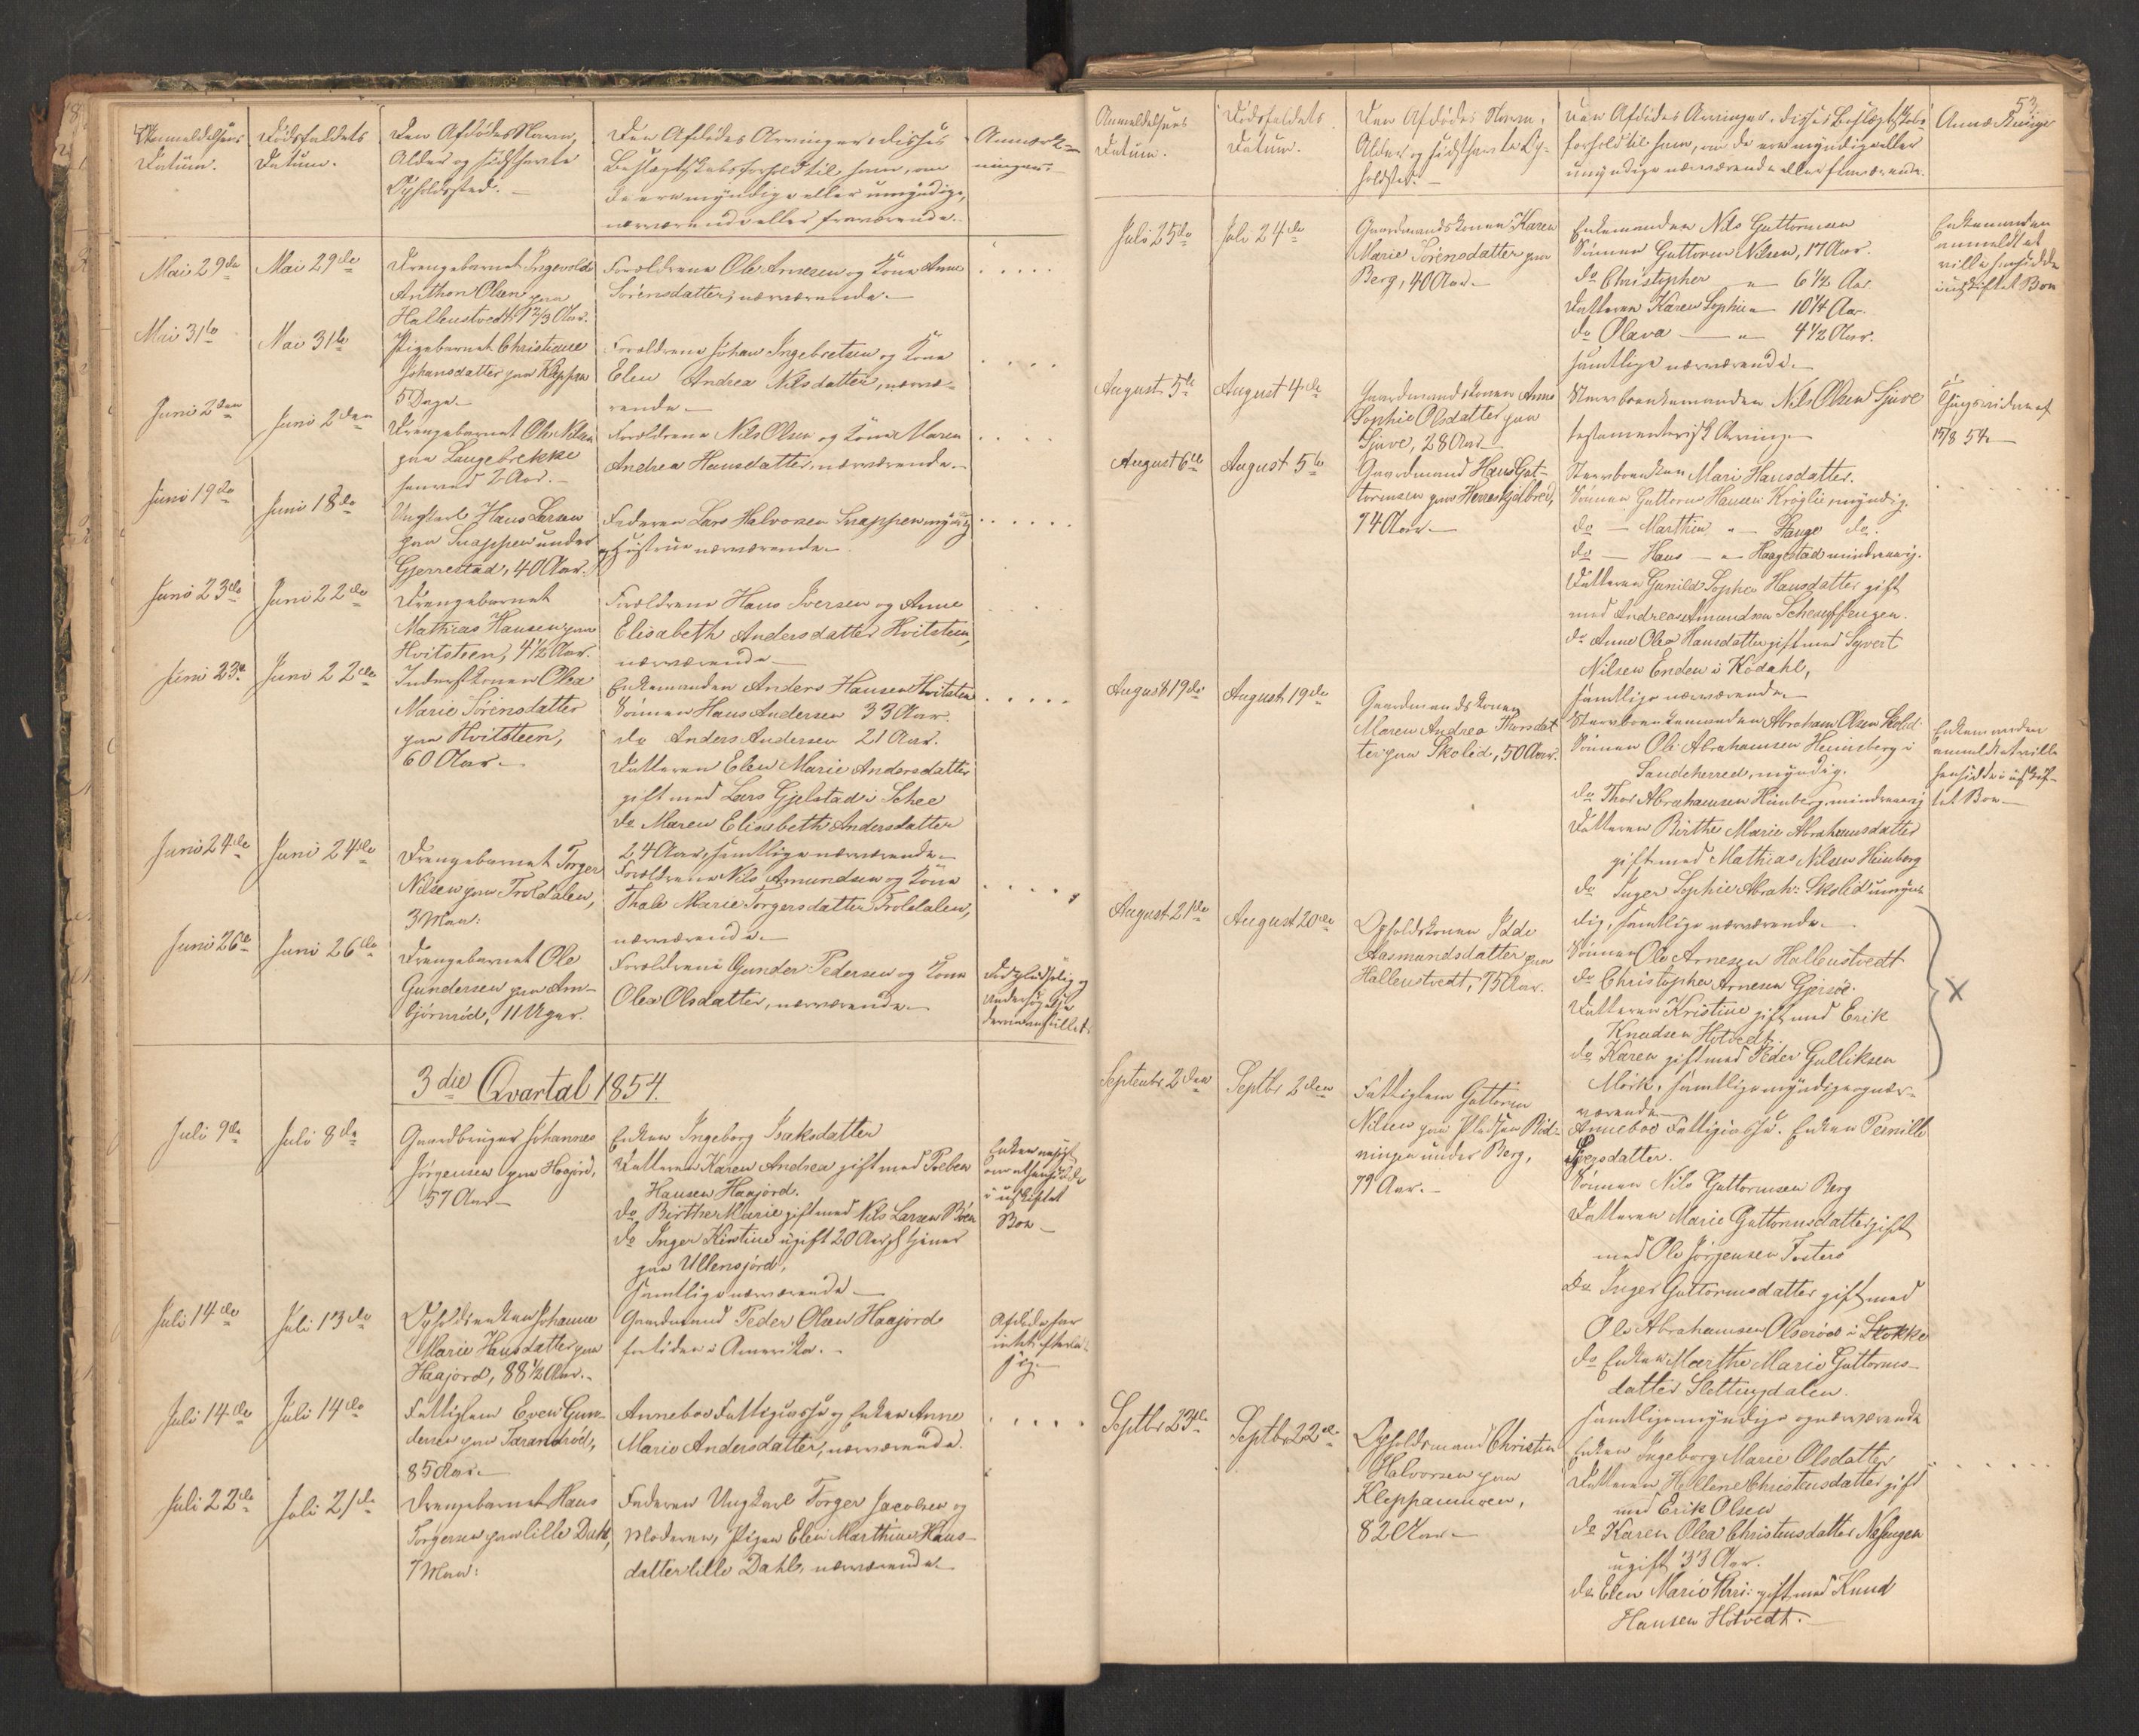 Anmeldelsens
Datum.
Dødsfaldets
Datum.
Den Afdødes Navn,
Alder og sidsthavte
Opholdssted.
Den Afdødes Arvinger, disses
Beslægtskabsforhold til ham, om
de ere myndige eller umyndige,
nærværende eller fraværende.
Anmærk-
ninger.
Mai 29de
Mai 29de
Drengebarnet Ingevold
Anthon Olsen paa
Hallenstvedt 1 2/3 Aar.
Forældrene Ole Arnesen og Kone Anne
Sørensdatter, nærværende.
Mai 31te
Mai 31te
Pigebarnet Christiane
Johansdatter paa Kleppan
5 Dage.
Forældrene Johan Ingebretsen og Kone
Elen Andrea Nilsdatter, nærvæ-
rende.
Juni 2den
Juni 2den
Drengebarnet Ole Nilsen
paa Langebrekke
2 Aar.
Forældrene Nils Olsen og Kone Maren
Andrea Hansdatter, nærværende.
Juni 19de
Juni 18de
Ungkarl Hans Larsen
paa Snappen under
Gjerrestad, 40 Aar.
Faderen Lars Halvorsen Snappen myndig
og Hustrue nærværende.
Juni 23de
Juni 22de
Drengebarnet
Mathias Hansen paa
Hvitsteen, 4 1/2 Aar.
Forældrene Hans Iversen og Anne
Elisabeth Andersdatter Hvitsteen,
nærværende.
Juni 23de
Juni 22de
Inderstkonen Olea
Marie Sørensdatter
paa Hvitsteen,
60 Aar.
Enkemanden Anders Hansen Hvitsteen
Sønnen Hans Andersen 33 Aar.
do Anders Andersen 21 Aar.
Datteren Elen Marie Andersdatter
gift med Lars Gjelstad i Schee
do Maren Elisabeth Andersdatter
24 Aar, samtlige nærværende.
Juni 24de
Juni 24de
Drengebarnet Torger
Nilsen paa Troldalen,
3 Mnd:
Forældrene Nils Amundsen og Kone
Thale Marie Torgersdatter Troldalen,
nærværende.
Juni 26de
Juni 26de
Drengebarnet Ole
Gundersen paa Am-
bjørnrød, 11 Uger.
Forældrene Gunder Pedersen og Kone
Olea Olsdatter, nærværende.
3die Qvartal 1854.
Juli 9de
Juli 8de
Gaardbruger Johannes
Jørgensen paa Hogjord,
57 Aar.
Enken Ingeborg Isaksdatter
Datteren Karen Andrea gift med Preben
Hansen Haajord.
do Birthe Marie gift med Nils Larsen Bøen
do Inger Kirstine ugift 20 Aar tjener
paa Ullensjord,
samtlige nærværende.
i uskiftet
Boe.
Juli 14de
Juli 13de
Opholdsenken Johanne
Marie Hansdatter paa
Haajord, 88 1/2 Aar.
Gaardmand Peder Olsen Haajord
for tiden i Amerika.
Afdøde har
intet efterladt
sig.
Juli 14de
Juli 14de
Fattiglem Even Gun-
dersen paa Tarandrød,
85 Aar.
Anneboe Fattigkasse og Enken Anne
Marie Andersdatter, nærværende.
Juli 22de
Juli 21de
Drengebarnet Hans
Torgersen paa lille Dahl,
7 Mnd:
Faderen Ungkarl Torger Jacobsen og
Moderen, Pigen Elen Marthine Hans-
datter lille Dahl, nærværende.
53
Anmeldelsens
Datum.
Dødsfaldets
Datum.
Den Afdødes Navn,
Alder og sidsthavte Op-
holdssted.
Den Afdødes Arvinger, disses Beslægtskabs-
forhold til ham, om de ere myndige eller
umyndige nærværende eller fraværende.
Anmærkninger
Juli 25de
Juli 24de
Gaardmandskonen Karen
Marie Sørensdatter paa
Berg, 40 Aar.
Enkemanden Nils Guttormsen
Sønnen Guttorm Nilsen, 17 Aar.
do Christopher " 6 1/2 Aar
Datteren Karen Sophie 10 1/4 Aar.
do Olava " 4 1/2 Aar.
samtlige nærværende.
Enkemanden
anmeldt at
ville hensidde
i uskiftet Boe
August 5te
August 4de
Gaardmandskonen Anne
Sophie Olsdatter paa
Sjuve, 28 Aar.
Stervboenkemanden Nils Olsen Sjuve
testamentarisk Arving.
15/8 54.
August 6te
August 5te
Gaardmand Hans Gut-
tormsen paa Herreskjelbred,
74 Aar.
Stervboenken Mari Hansdatter.
Sønnen Guttorm Hansen Kroglie, myndig.
do — Marthin " Hauge do.
do — Hans — " Haagestad mindreaarig.
Datteren Gunild Sophie Hansdatter gift
med Andreas Amundsen
do Anne Olea Hansdatter gift med Syvert
Nilsen Enden i Kodahl,
samtlige nærværende.
August 19de
August 19de
Gaardmandskonen
Maren Andrea Thorsdat-
ter paa Skolid, 50 Aar.
Stervboenkemanden Abraham Olsen Skolid
Sønnen Ole Abrahamsen Heimberg i
Sandeherred, myndig.
do Thor Abrahamsen Heimberg, mindreaarig
Datteren Birthe Marie Abrahamsdatter
gift med Mathias Nilsen Heimberg
do Inger Sophie Abrah: Skolid umyn-
dig, samtlige nærværende.
Enkemanden
anmeldt at ville
hensidde i uskif-
tet Boe.
August 21de
August 20de
Opholdskonen Idde
Aasmundsdatter paa
Hallenstvedt, 75 Aar.
Sønnen Ole Arnesen Hallenstvedt
do Christopher Arnesen Gjersøe.
Datteren Kristine gift med Erik
Knudsen Hotvedt,
do Karen gift med Peder Gulliksen
Mørk, samtlige myndige og nær-
værende.
X
Septembr 2den
Septbr 2den
Fattiglem Guttorm
Nilsen paa Pladsen Rød-
ningen under Berg,
79 Aar.
Anneboe Fattigkasse. Enken Pernille
Sønnen Nils Guttormsen Berg
Datteren Marie Guttormsdatter gift
med Ole Jørgensen
do Inger Guttormsdatter gift med
Ole Abrahamsen Olserød i Stokke
do Enken Marthe Marie Guttorms-
datter Slettingdalen.
samtlige myndige og nærværende
Septbr 23de
Septbr 22de
Opholdsmand Christen
Halvorsen paa
82 Aar.
Enken Ingeborg Marie Olsdatter
Datteren Hellene Christensdatter gift
med Erik Olsen
do Karen Olea Christensdatter
ugift 33 Aar.
do Elen Marie Chri: gift med Knud
Hansen Hotvedt.